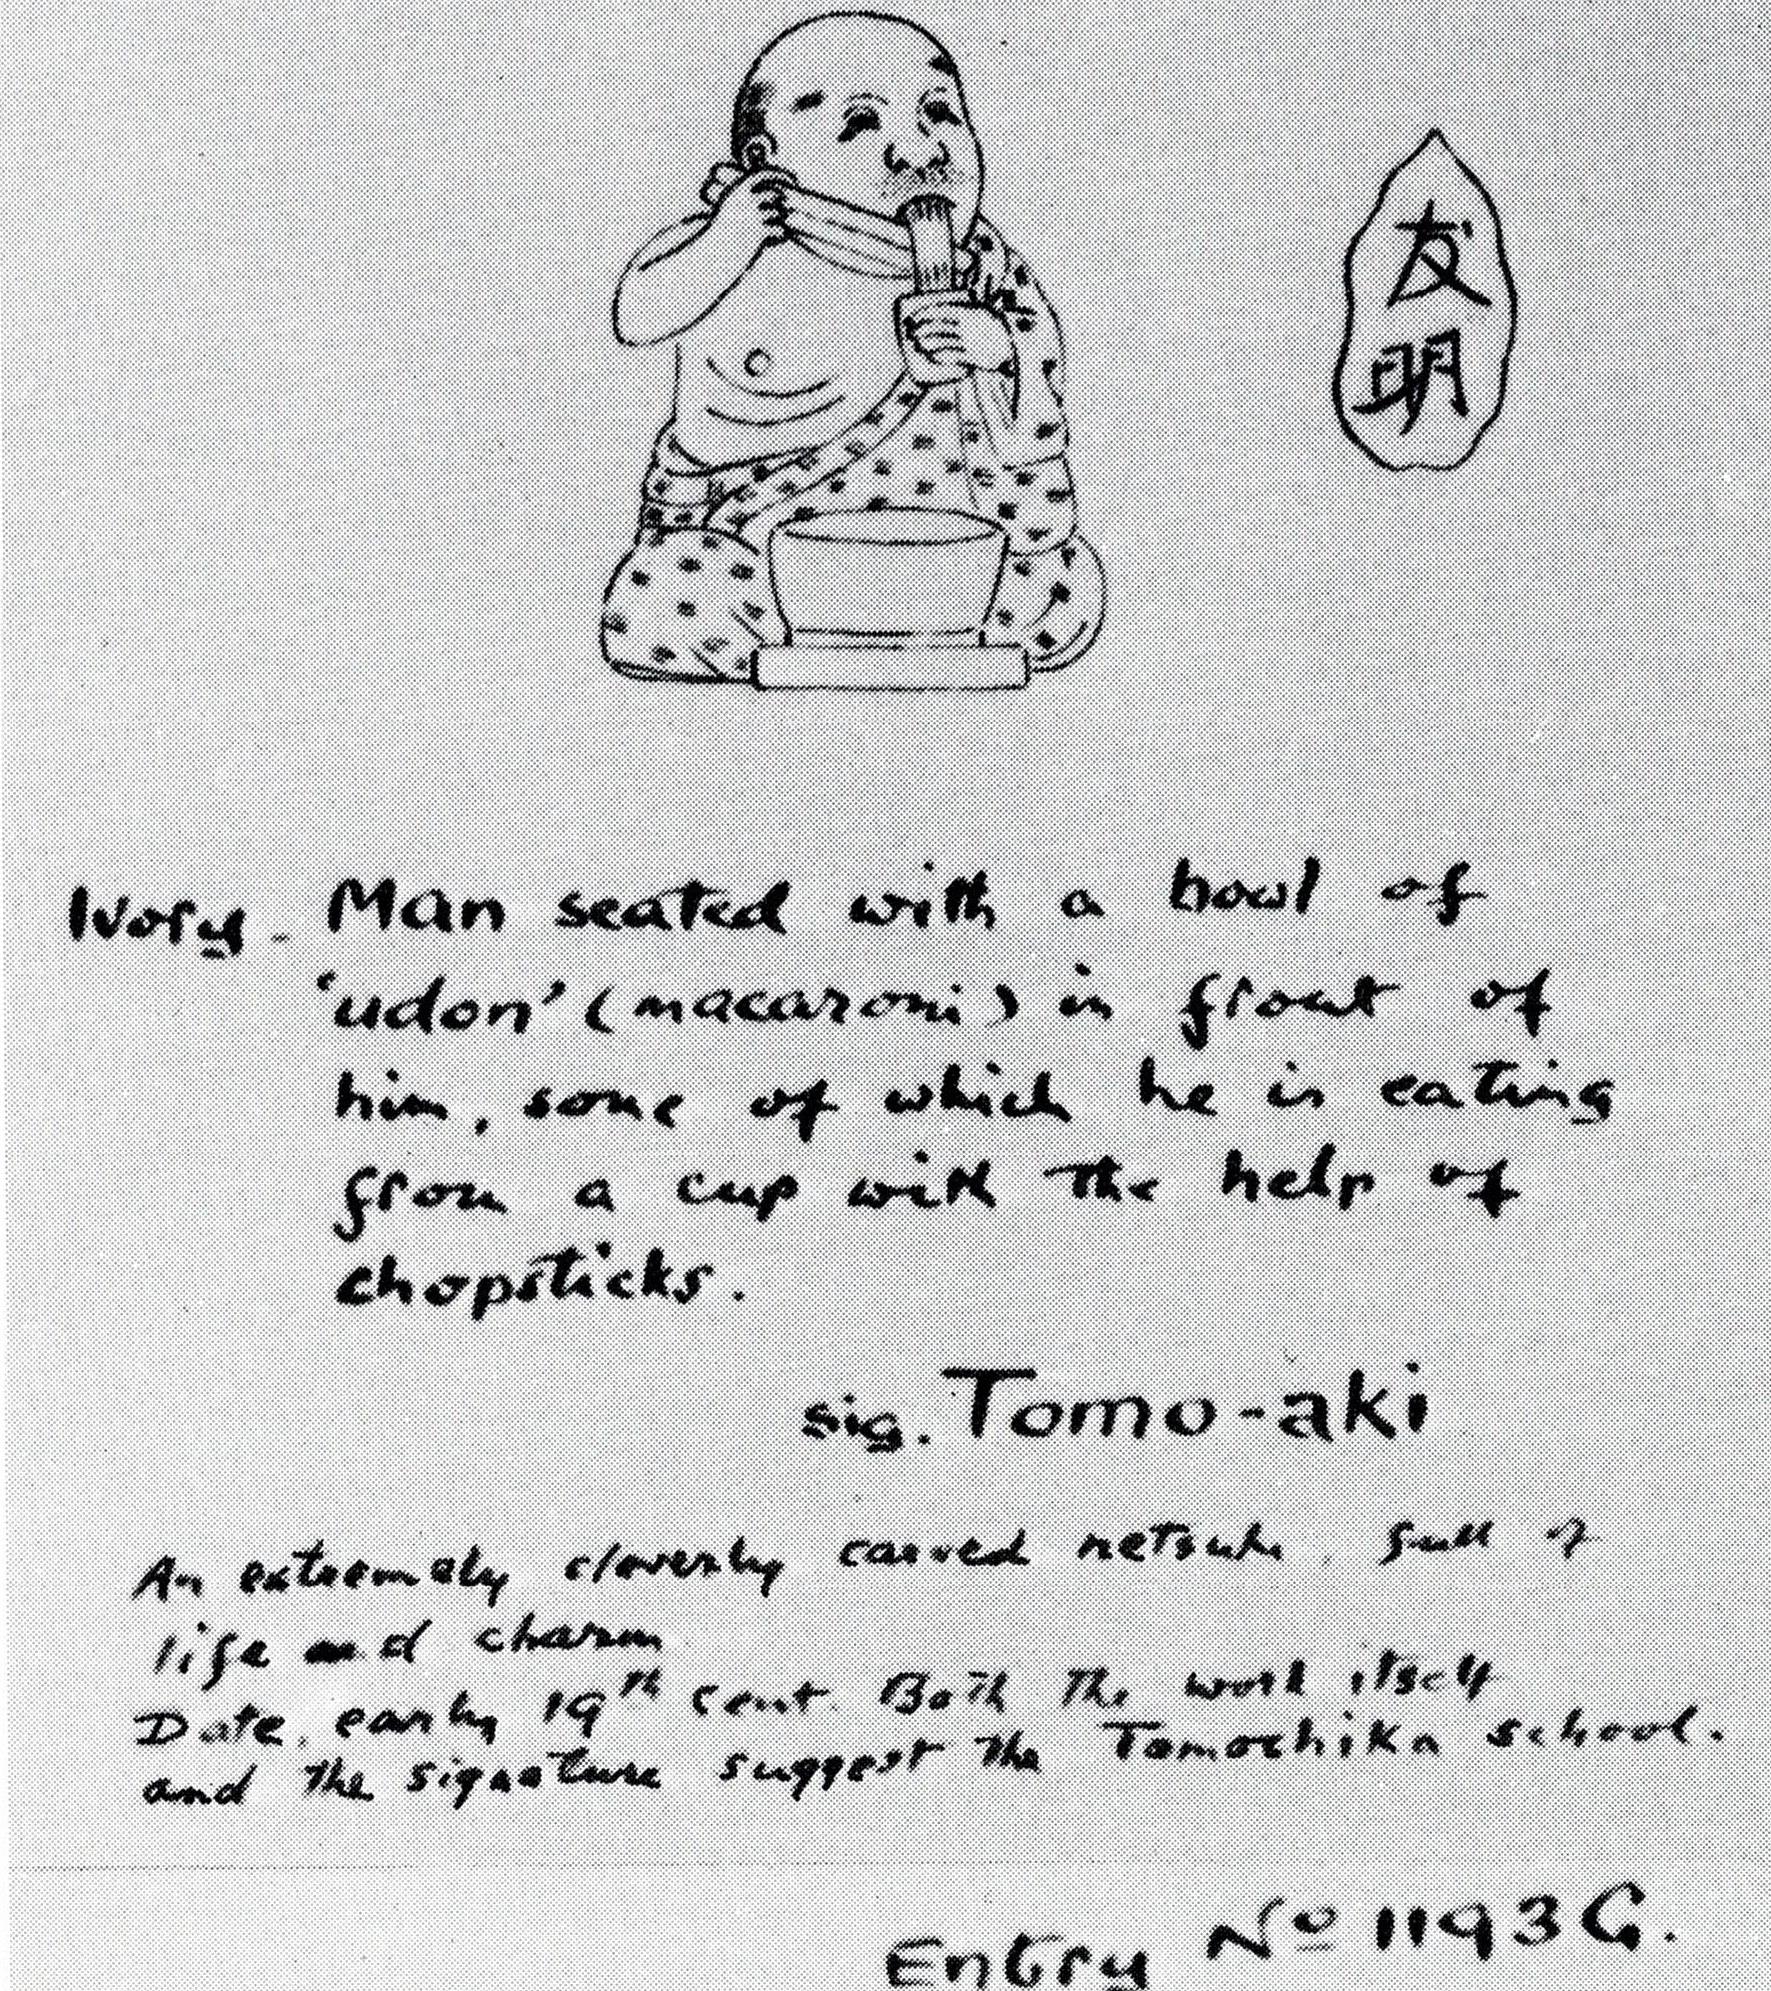 友
明
Ivory. Man seated with a bowl of
'udon' (macaroni) in front of
him, some of which he is eating
from a cup with the help of
chopsticks.
sig. Tomo-aki
An extremely cleverly carved netsuke, full of
life and charm
Date, early 19th cent. Both the work itself
and the signature suggest the Tomochika school.
Entry No 1193 G.